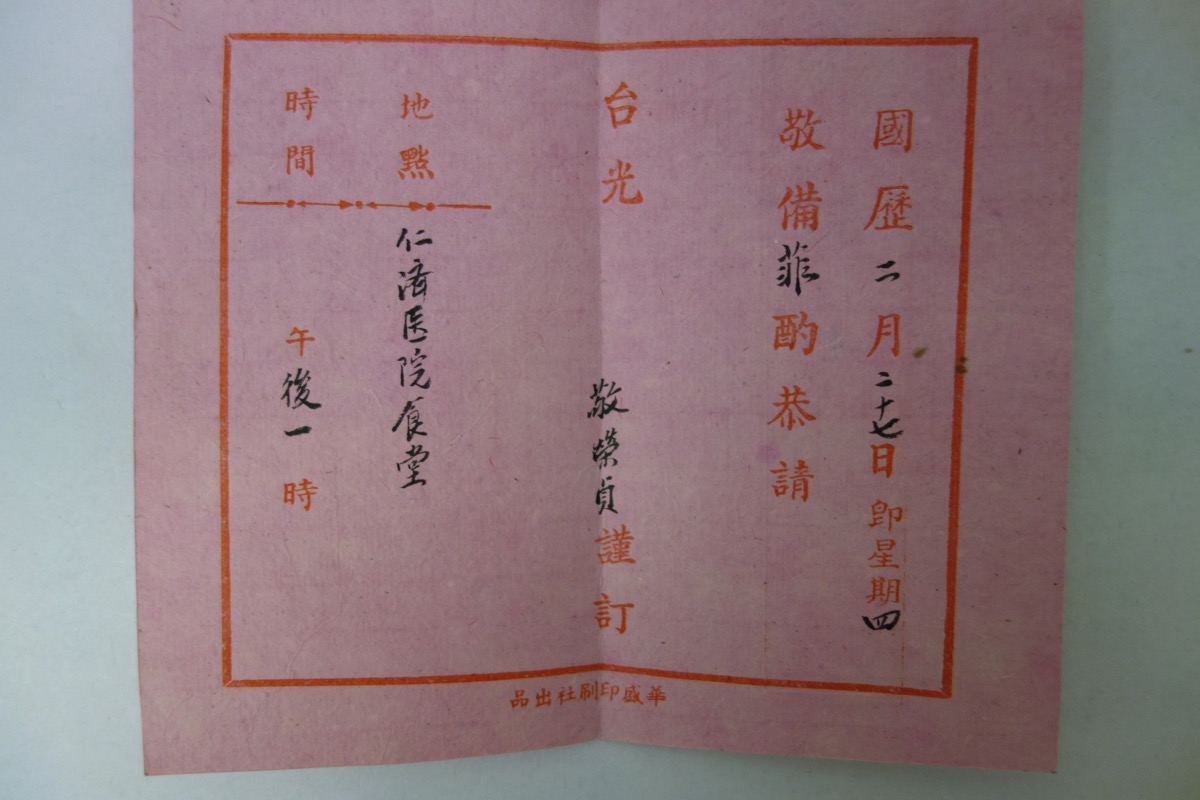 國歷二月二十七日即星期四
敬備菲酌恭請
台光
敬榮貞謹訂
地點 仁濟医院食堂
時間 午後一時
華盛印刷社出品